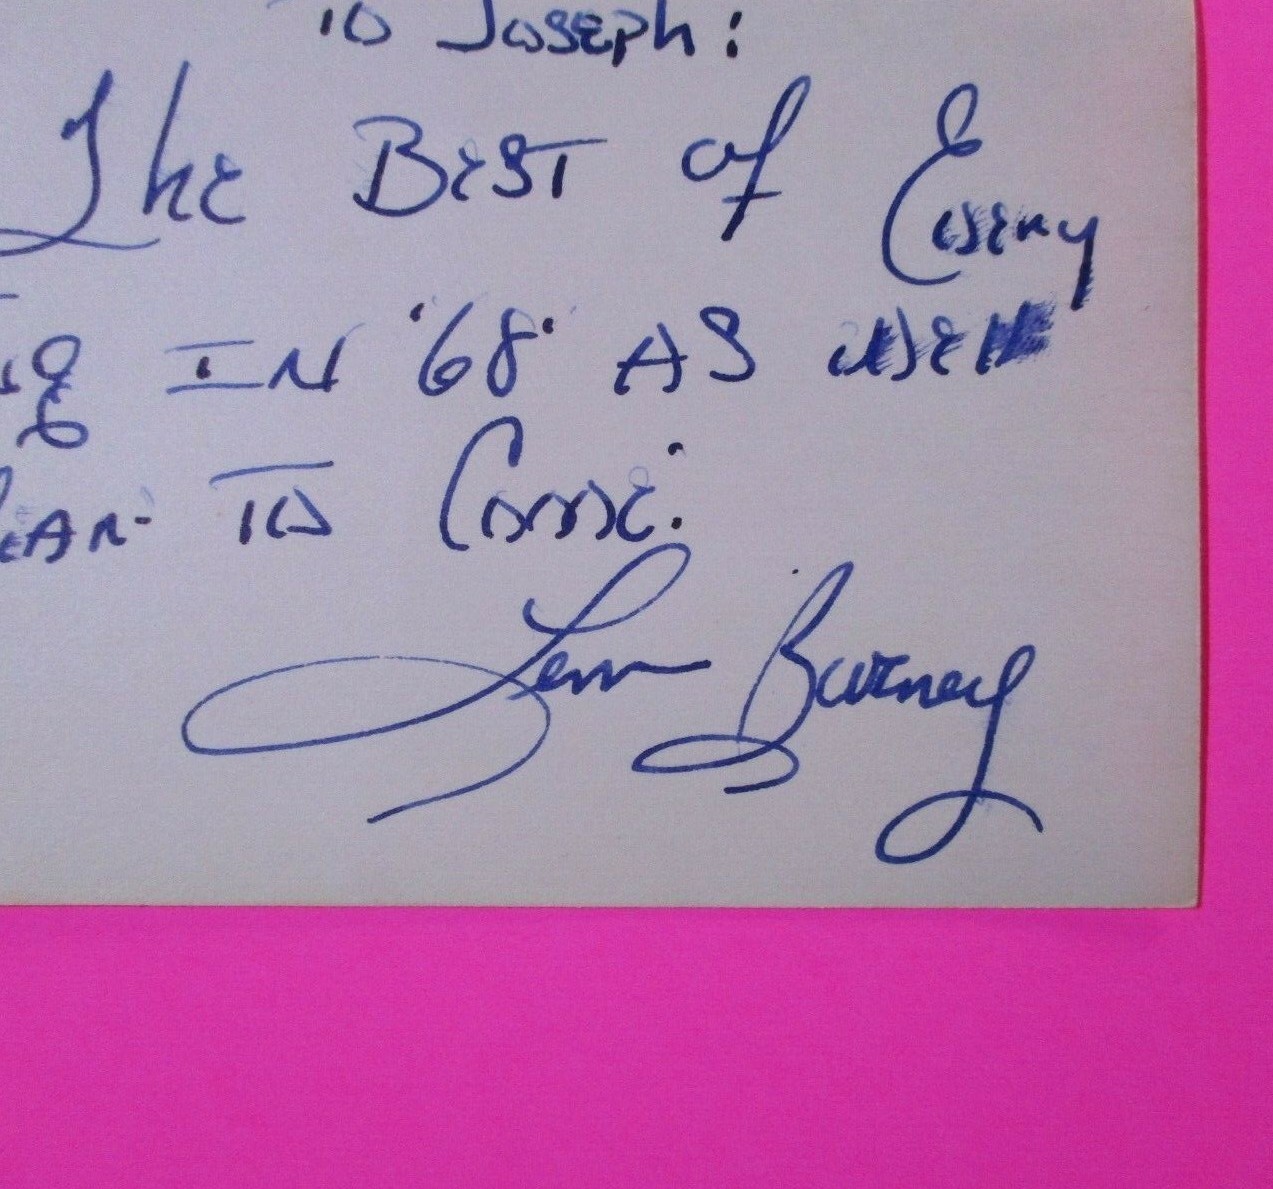 To Joseph:
The Best of Every
IN '68' AS Well
TO Come.
Lem Barney